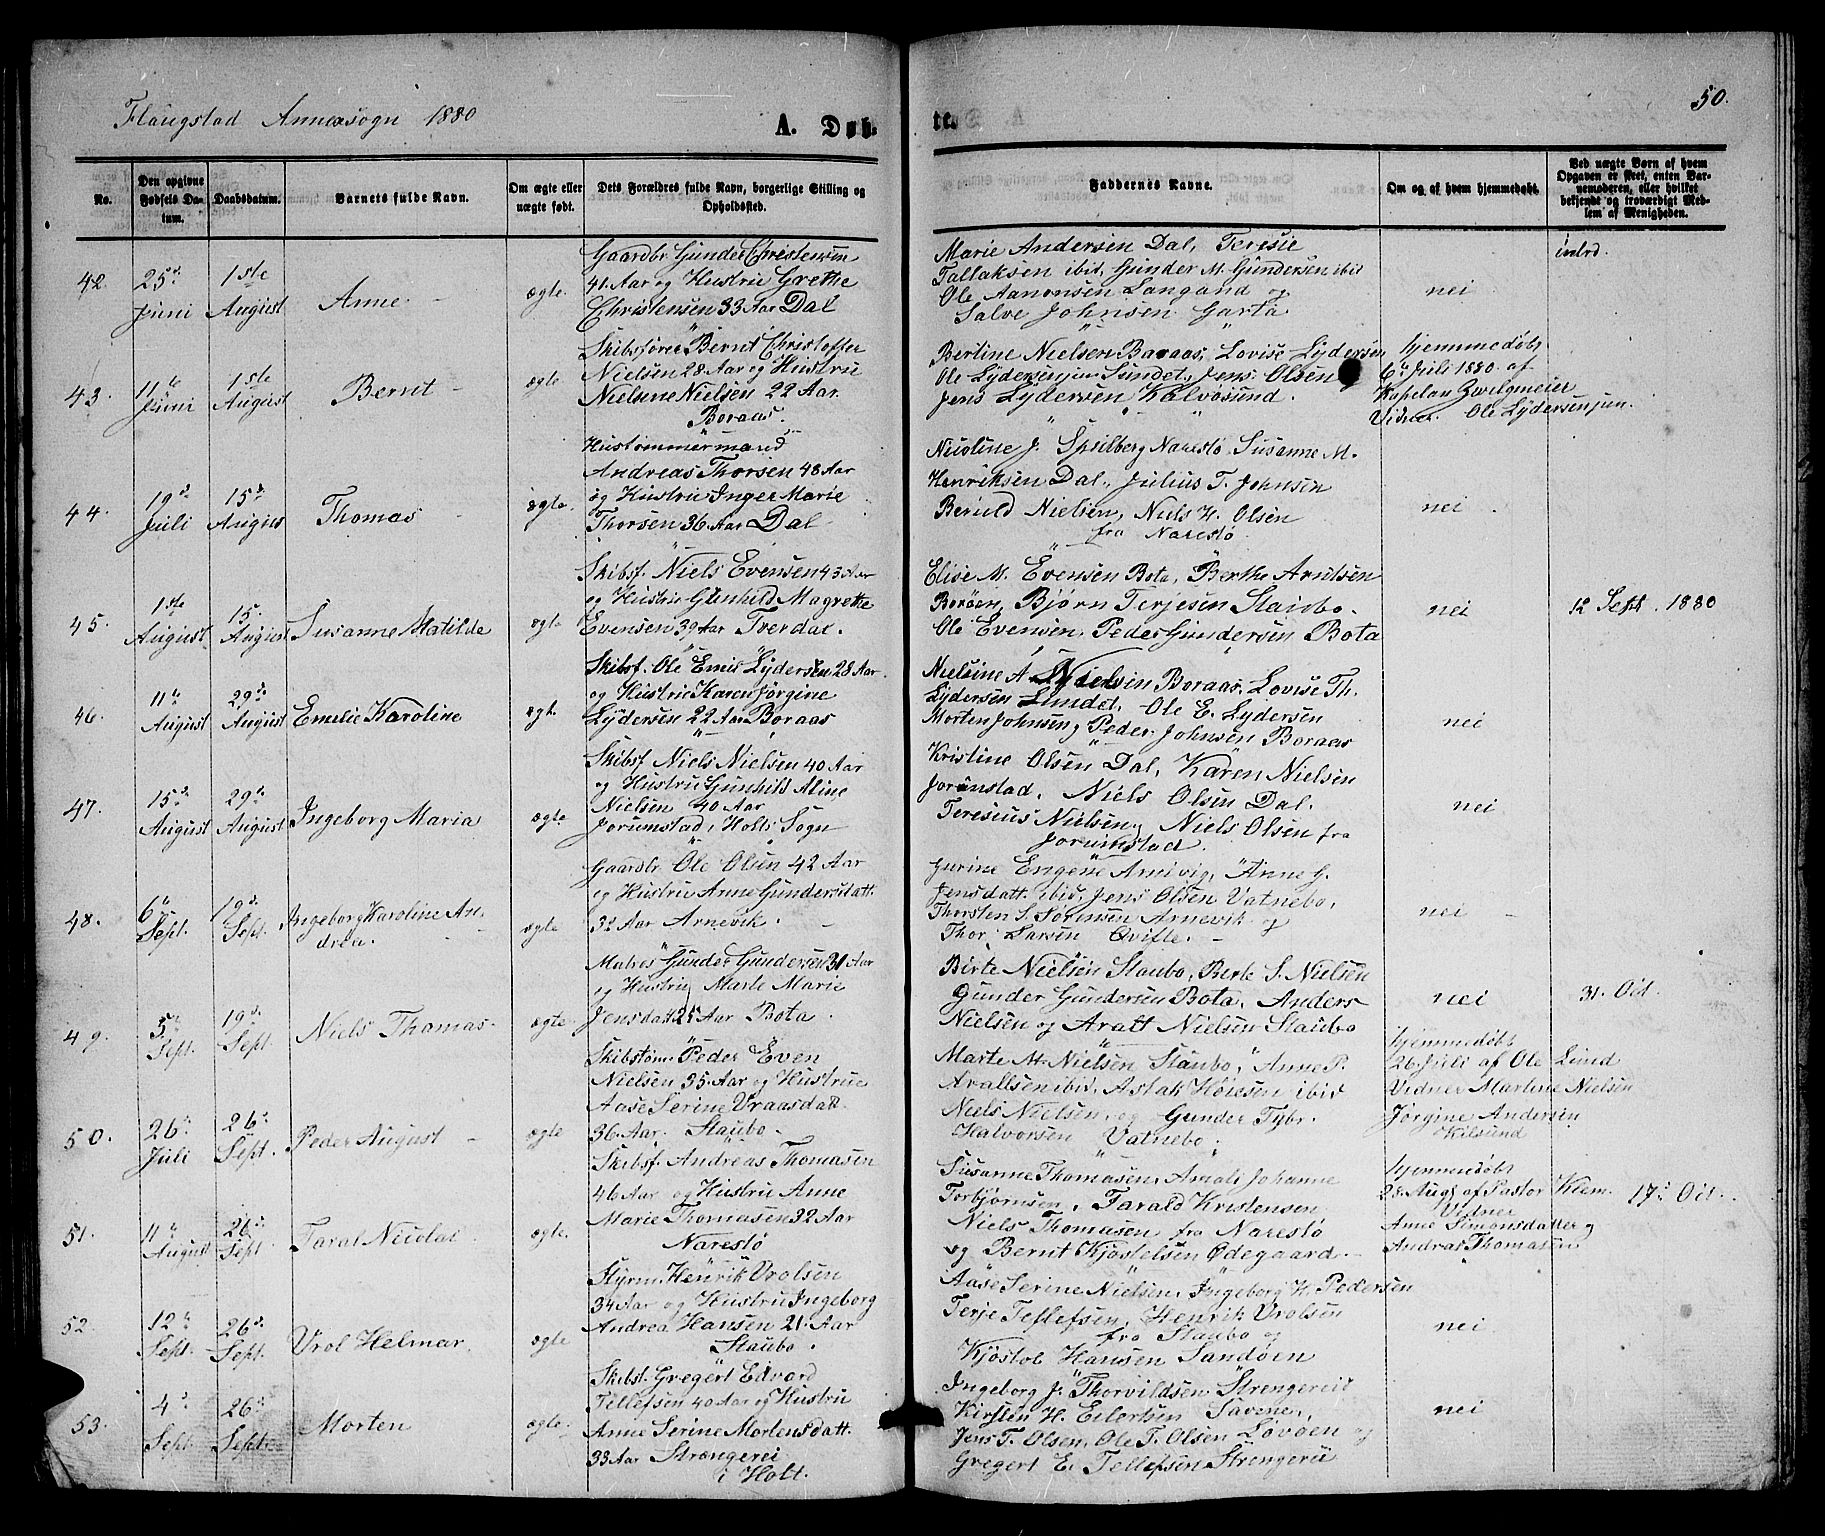 Flaugstad Annexsogn 1880
A. Døb-
te.
50.
No.
Den opgivne Fødsels Da-
tum.
Daabsdatum.
Barnets fulde Navn.
Om ægte eller
uægte født.
Dets Forældres fulde Navn, borgerlige Stilling og
Opholdssted.
Faddernes Navne.
Om og af hvem hjemmedøbt.
Ved uægte Børn af hvem
Opgaven er skeet, enten Bar-
nemoderen, eller hvilket
bekjendt og troværdigt Med-
lem af Menigheden.
42.
25de
Juni
1ste
August
Anne
ægte.
Gaardbr Gunder Christensen
41 Aar og Hustru Grethe
Christensen 33 Aar Dal
Marie Andersen Dal, Teresie
Tallaksen ibid, Gunder M. Gundersen ibid
Ole Aanonsen Langand og
Salve Johnsen Garta
nei
43.
11te
Juni
1ste
August
Bernt
ægte
Skibsfører Bernt Christoffer
Nielsen 28 Aar og Hustru
Nielsine Nielsen 22 Aar
Boraas.
Bertine Nielsen Boraas, Lovise Lydersen
Ole Lydersen jun Sundet, Jens Olsen
Jens Lydersen Kalvøsund.
hjemmedøbt
6te Juli 1880 af
Kapelan Zwilgmeier
Vidner. Ole Lydersen jun.
44.
19de
Juli
15de
August
Thomas
ægte.
Hustømmermand
Andreas Thorsen 48 Aar
og Hustru Inger Marie
Thorsen 36 Aar Dal
Nicoline J. Spilberg Narestø, Susanne M.
Henriksen Dal, Julius T. Johnsen
Niels H. Olsen
fra Narestø
nei
45.
1ste
August
15.
August
Susanne Matilde
ægte
Skibsf. Niels Evensen 43 Aar
og Hustru Gunhild Magrethe
Evensen 39 Aar Tverdal.
Elise M. Evensen Bota, Berthe Arntsen
Borøen, Bjørn Terjesen Staubo.
Ole Evensen, Peder Gundersen Bota
nei
12 Sept. 1880
46.
11te
August
29de
August
Emelie Karoline
ægte.
Skibsf. Ole Emil Lydersen 28 Aar.
og Hustru Karen Jørgine
Lydersen 22 Aar Boraas
Nielsine A. Nielsen Boraas, Lovise Th.
Lydersen Sundet, Ole E. Lydersen
Morten Johnsen, Peder Johnsen Boraas
nei
47.
15de
August
29de
August
Ingeborg Maria
ægte
Skibsf Niels Nielsen 40 Aar
og Hustru Gunhild Aline
Nielsen 40 Aar
Jorumstad i Holts Sogn
Kristine Olsen Dal, Karen Nielsen
Jorunstad, Niels Olsen Dal.
Teresius Nielsen, Niels Olsen fra
Jorumstad.
nei
48.
6te
Sept.
19de
Sept.
Ingeborg Karoline An-
drea.
ægte
Gaardbr Ole Olsen 42 Aar
og Hustru Anne Gundersdatt.
32 Aar Arnevik.
Jurine Engene Arnivig, Anne G.
Jensdatt. ibid, Jens Olsen Vatnebo,
Thorsten S. Sørensen Arnevik og
Thor Larsen Qvifte.
nei
49.
5te
Sept.
19de
Sept.
Niels Thomas
ægte.
Matros Gunder Gundersen 31 Aar
og Hustru Marte Marie
Jensdatt 25 Aar Bota.
Birte Nielsen Staubo, Berte S. Nielsen
Gunder Gundersen Bota, Anders
Nielsen og Aralt Nielsen Staubo
nei
31. Oct.
50.
26de
Juli
26de
Sept.
Peder August
ægte
Skibstøm. Peder Even
Nielsen 35 Aar og Hustrue
Aase Serine Vraasdatt.
36. Aar. Staubo
Marte M. Nielsen Staubo, Anne P.
Arallsen ibid, Aslak Høiesen ibid
Niels Nielsen, og Gunder Tybr.
Halvorsen Vatnebo.
hjemmedøbt
26 Juli af Ole Lund
Vidner Martine Nielsen
Jørgine Andersen
Kilsund
51.
11te
August
26de
Sept
Taral Nicolai
ægte.
Skibsf. Andreas Thomasen
46 Aar og Hustru Anne
Marie Thomasen 32 Aar
Narestø
Susanne Thomasen, Amali Johanne
Torbjørnsen, Tarald Kristensen
Niels Thomasen fra Narestø
og Bernt Kjøstelsen Ødegaard.
hjemmedøbt
28 Augs af Pastor Klem
Vidner
Anne Simonsdatter og
Andreas Thomasen
17de Oct.
52
12te
Sept.
26de
Sept.
Vrol Helmar
ægte
Styrm. Henrik Vrolsen
34 Aar og Hustru Ingeborg
Andrea Hansen 21 Aar
Staubo.
Aase Serine Nielsen, Ingeborg H. Pedersen
Terje Tellefsen, Henrik Vrolsen
fra Staubo og
Kjøstol Hansen Sandøen
nei
53.
4de
Sept.
26de
Sept.
Morten
ægte.
Skibst. Gregert Edvard
Tellefsen 40 Aar og Hustru
Anne Serine Mortensdatt.
33 Aar Strengerei
i Holt.
Ingeborg J. Thorvildsen Strengereid
Kirsten H. Eilertsen Savene,
Jens T. Olsen, Ole T. Olsen Løvøen og
Gregert E. Tellefsen Strengerei
nei